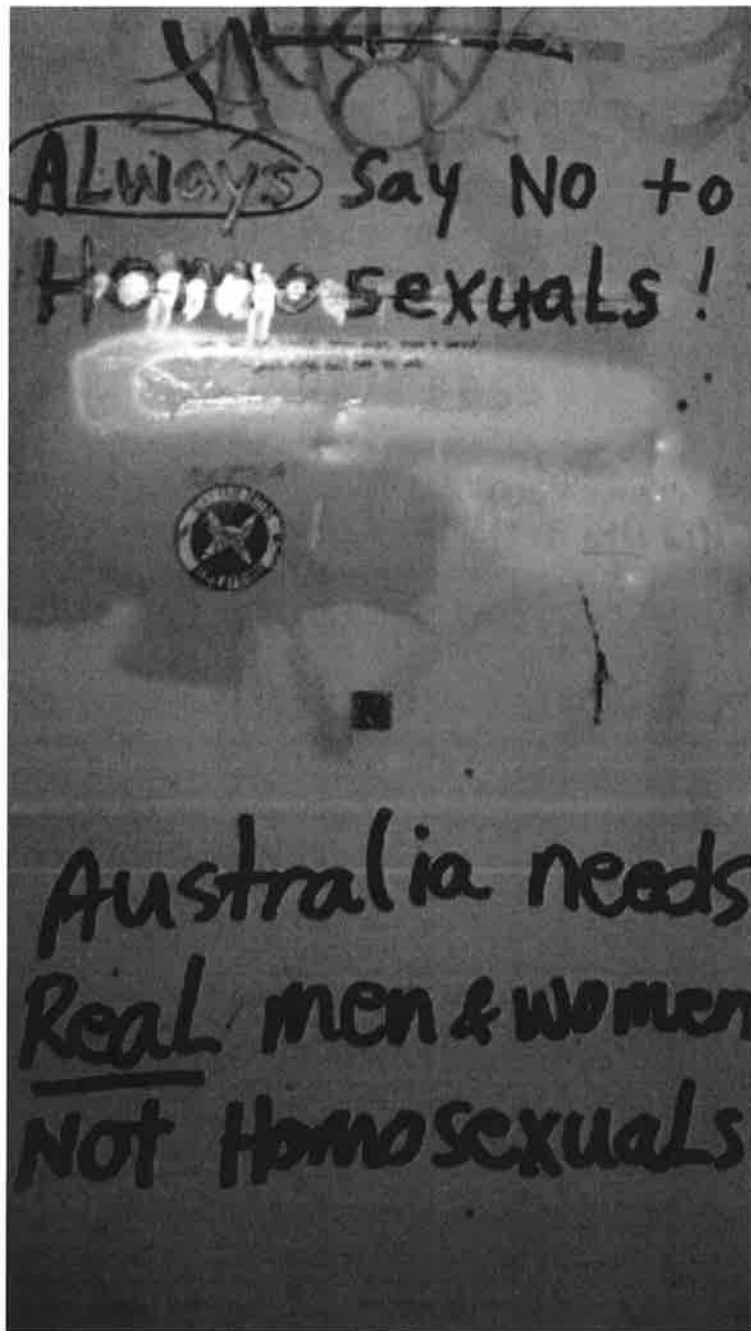 ALways Say No to
Homosexuals!
Australia needs
ReaL men & women
Not HomosexuaLs